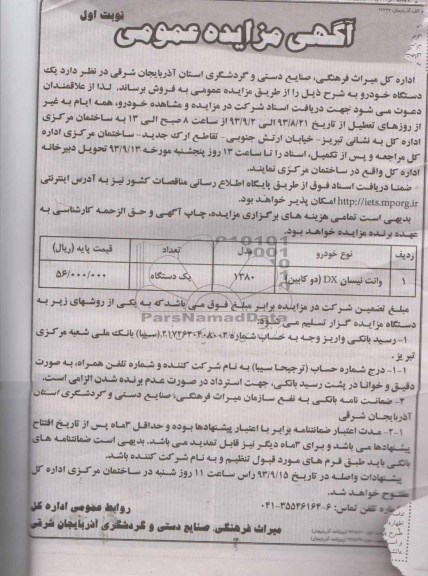 نوبت اول
آگهی مزایده عمومی
اداره کل میراث فرهنگی، صنایع دستی و گردشگری استان آذربایجان شرقی در نظر دارد یک
دستگاه خودرو به شرح ذیل را از طریق مزایده عمومی به فروش برساند. لذا از علاقمندان
دعوت می شود جهت دریافت اسناد شرکت در مزایده و مشاهده خودرو، همه ایام به غیر
از روزهای تعطیل از تاریخ ۹۳/۸/۲۱ الی ۹۳/۹/۲ از ساعت ۸ صبح الی ۱۳ به ساختمان مرکزی
اداره کل به نشانی تبریز- خیابان ارتش جنوبی- تقاطع ارک جدید- ساختمان مرکزی اداره
کل مراجعه و پس از تکمیل، اسناد را تا ساعت ۱۳ روز پنجشنبه مورخه ۹۳/۹/۱۳ تحویل دبیرخانه
اداره کل واقع در ساختمان مرکزی نمایند.
ضمنا دریافت اسناد فوق از طریق پایگاه اطلاع رسانی مناقصات کشور نیز به آدرس اینترنتی
http://iets.mporg.ir امکان پذیر خواهد بود.
بدیهی است تمامی هزینه های برگزاری مزایده، چاپ آگهی و حق الزحمه کارشناسی به
عهده برنده مزایده خواهد بود.
ردیف نوع خودرو مدل تعداد قیمت پایه (ریال)
۱ وانت نیسان DX (دو کابین) ۱۳۸۰ یک دستگاه ۵۶/۰۰۰/۰۰۰
مبلغ تضمین شرکت در مزایده برابر مبلغ فوق می باشد که به یکی از روشهای زیر به
دستگاه مزایده گزار تسلیم می شود:
ParsNamadData
۱- رسید بانکی واریز وجه به حساب شماره (سیبا) بانک ملی شعبه مرکزی
تبریز.
۱-۱- درج شماره حساب (ترجیحا سیبا) به نام شرکت کننده و شماره تلفن همراه، به صورت
دقیق و خوانا در پشت رسید بانکی، جهت استرداد در صورت عدم برنده شدن الزامی است.
۲- ضمانت نامه بانکی به نفع سازمان میراث فرهنگی، صنایع دستی و گردشگری استان
آذربایجان شرقی
۲-۱- مدت اعتبار ضمانتنامه برابر با اعتبار پیشنهادها بوده و حداقل ۳ماه پس از تاریخ افتتاح
پیشنهادها می باشد و برای ۳ماه دیگر نیز قابل تمدید می باشد. بدیهی است ضمانتنامه های
بانکی باید طبق فرم های مورد قبول تنظیم و به نام شرکت کننده باشد.
پیشنهادات واصله در تاریخ ۹۳/۹/۱۵ راس ساعت ۱۱ روز شنبه در ساختمان مرکزی اداره کل
مفتوح خواهد شد.
شماره تلفن تماس: ۶-۳۵۵۴۶۱۶۴-۰۴۱
روابط عمومی اداره کل
میراث فرهنگی، صنایع دستی و گردشگری آذربایجان شرقی